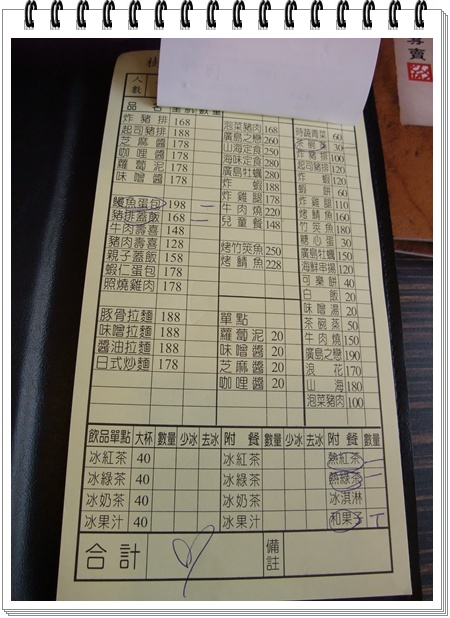 專賣
人數
品名 重點 數量
炸豬排 168
起司豬排 188
芝麻醬 178
咖哩醬 178
蘿蔔泥 178
味噌醬 178
鰻魚蛋包 198
豬排蓋飯 168
牛肉壽喜 148
豬肉壽喜 128
親子蓋飯 158
蝦仁蛋包 178
照燒雞肉 178
豚骨拉麵 188
味噌拉麵 188
醬油拉麵 188
日式炒麵 178
泡菜豬肉 168
廣島之戀 260
山海定食 250
海味定食 280
廣島牡蠣 280
炸蝦 188
炸雞腿 178
牛肉燒 220
兒童餐 148
烤竹莢魚 250
烤鯖魚 228
單點
蘿蔔泥 20
味噌醬 20
芝麻醬 20
咖哩醬 20
時蔬青菜 60
茶碗蒸 30
炸豬排 100
起司豬排 120
炸蝦 120
蝦餅 60
炸雞腿 110
炸鯖魚 160
竹莢魚 180
糖心蛋 30
廣島牡蠣 150
海鮮串揚 120
可樂餅 40
白飯 20
味噌湯 20
茶碗蒸 50
牛肉燒 150
廣島之戀 190
浪花 170
山海 180
泡菜豬肉 100
飲品單點 大杯 數量 少冰 去冰 附餐 數量 少冰 去冰 附餐 數量
冰紅茶 40 冰紅茶 熱紅茶
冰綠茶 40 冰綠茶 熱綠茶
冰奶茶 40 冰奶茶 冰淇淋
冰果汁 40 冰果汁 和果子
合計 備註